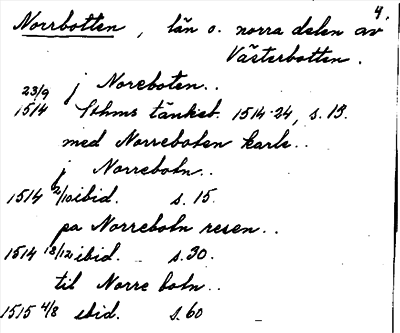 4.
Norrbotten, län o. norra delen av
Västerbotten.
j Noreboten..
23/9
1514 Sthms tänkeb. 1514-24, s. 13.
med Norreboten karle..
j Norrebotn..
1514 2/10 ibid. s. 15.
pa Norrebotn resen..
1514 13/12 ibid. s. 30.
til Norre botn..
1515 4/8 ibid. s. 60